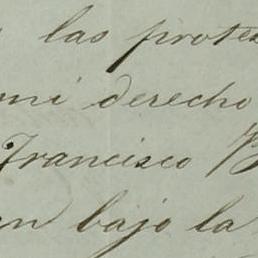 las protes
mi derecho
Francisco
an bajo la